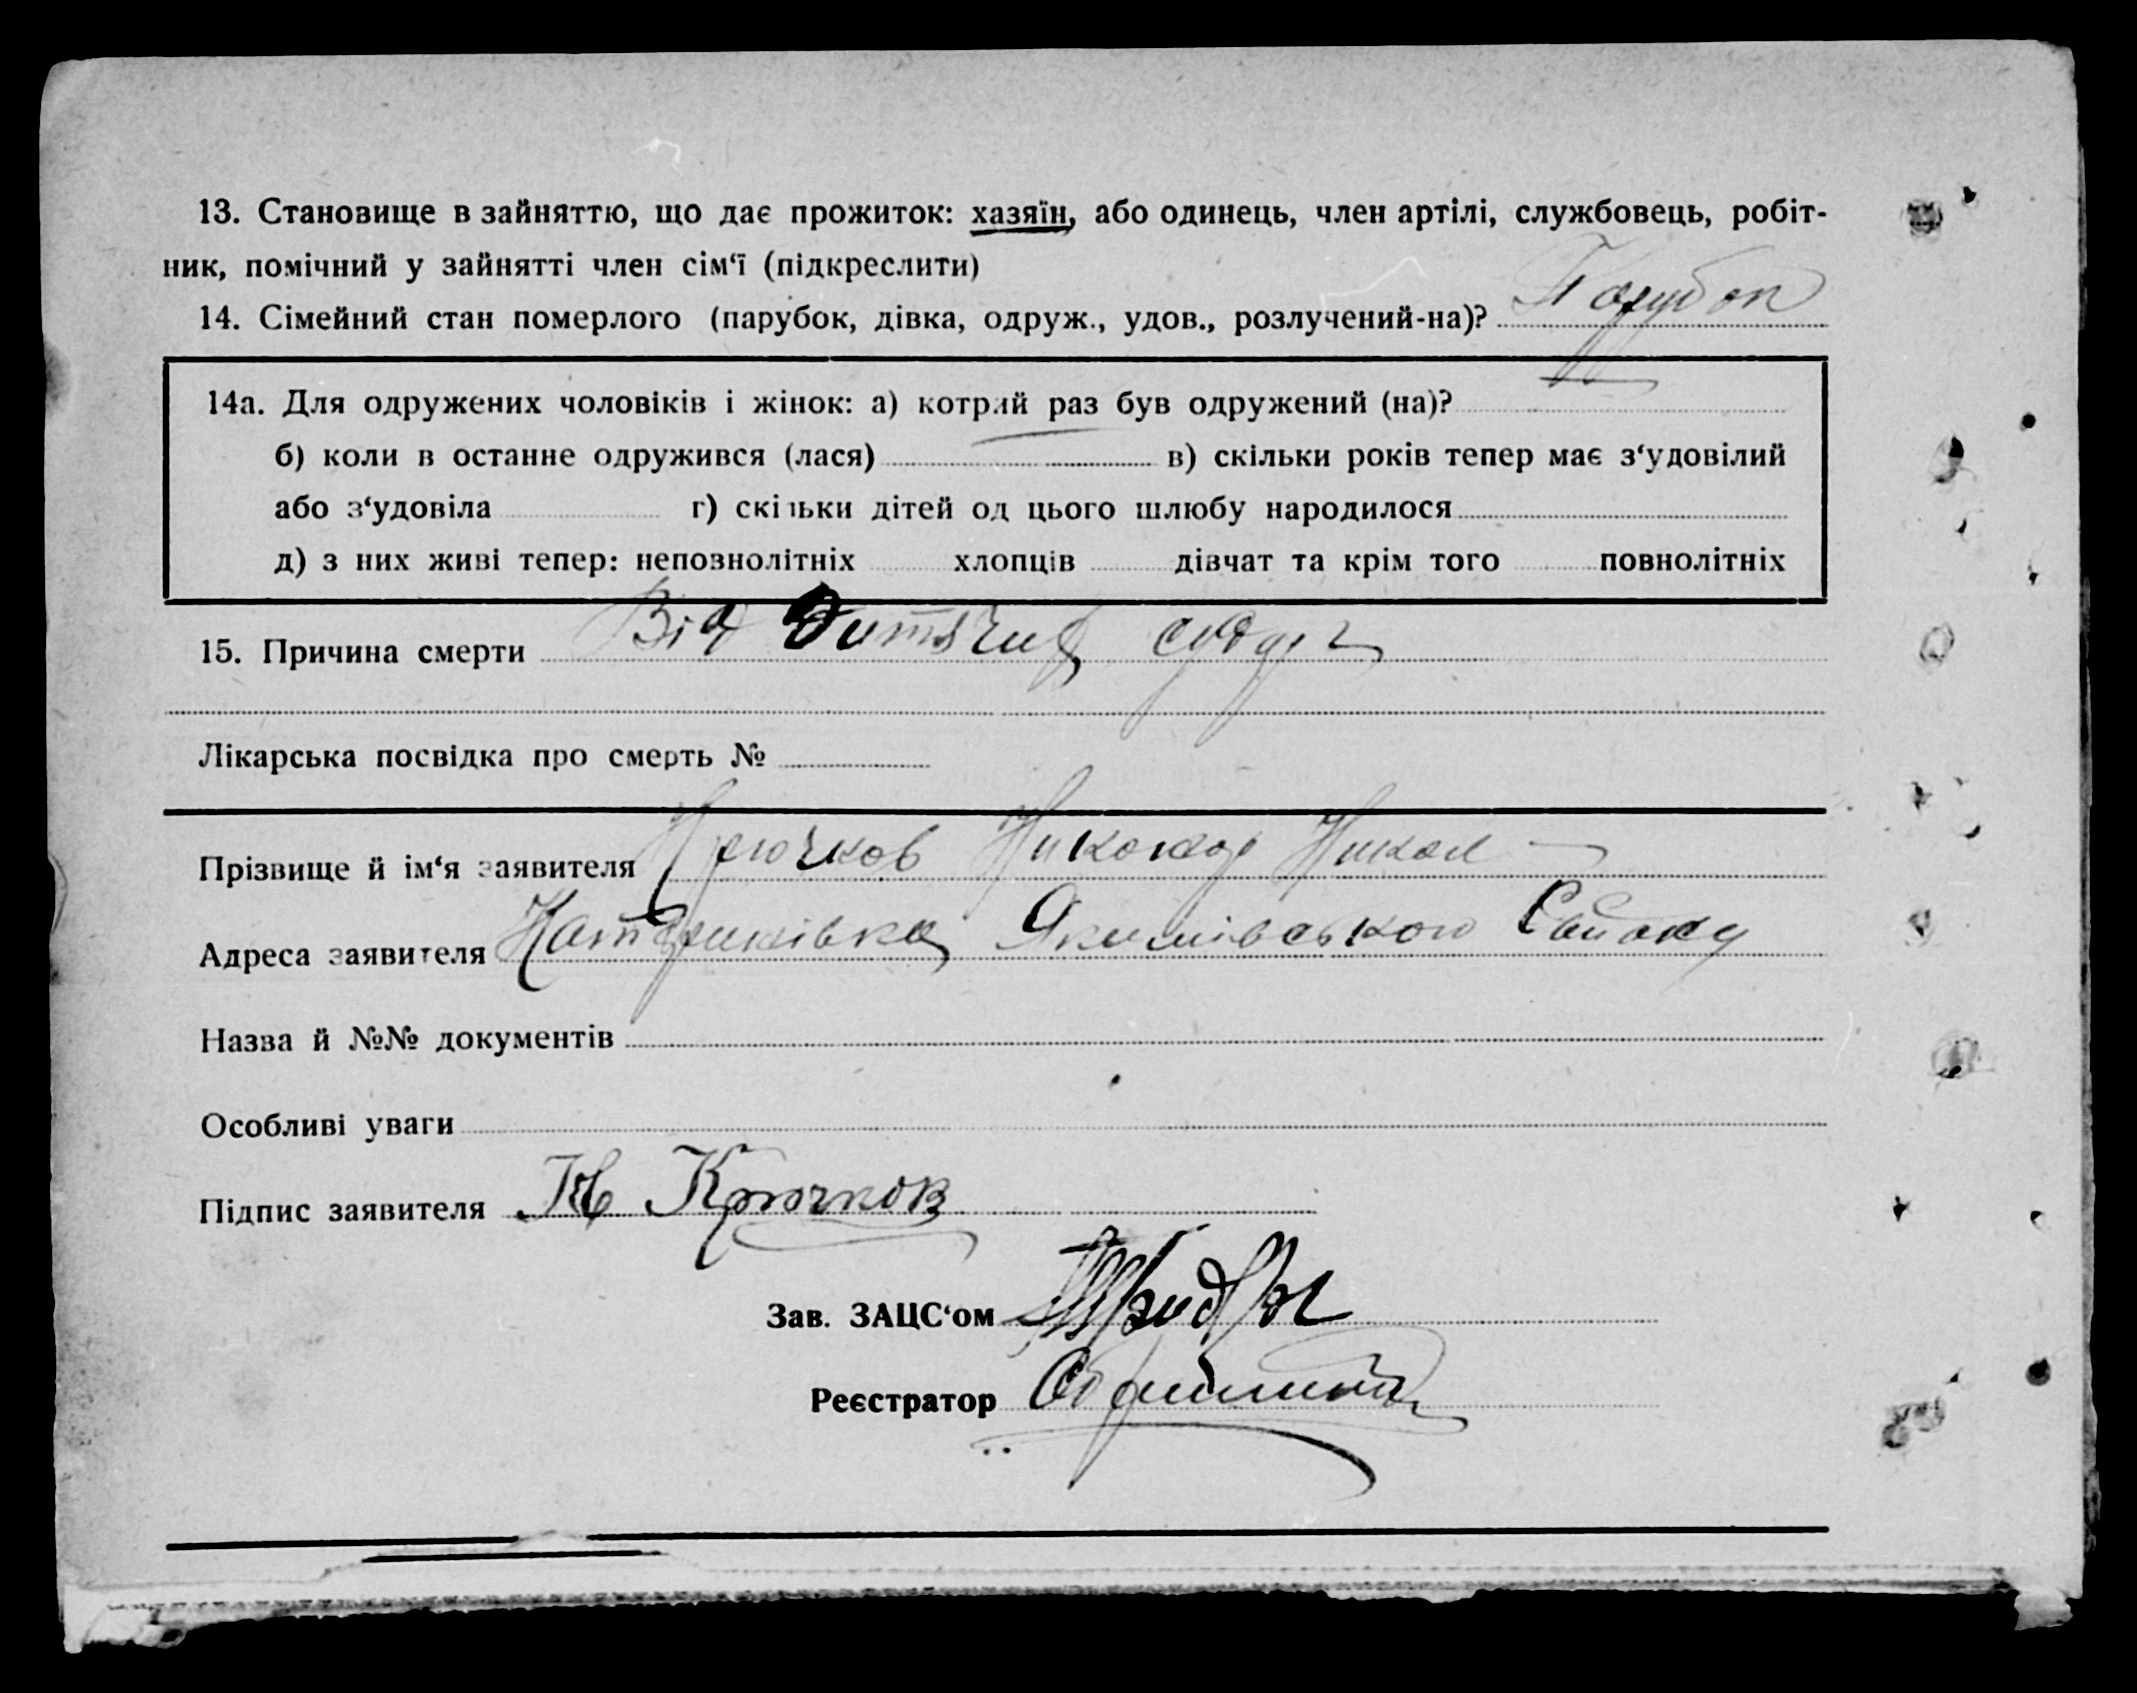 13. Становище в зайняттю, що дає прожиток: хазяїн, або одинець, член артілі, службовець, робіт-
ник, помічний у зайнятті член сім‘ї (підкреслити)
14. Сімейний стан померлого (парубок, дівка, одруж., удов., розлучений-на)? Парубок
14а. Для одружених чоловіків і жінок: а) котрий раз був одружений (на)?
б) коли в останне одружився (лася) в) скільки років тепер має з‘удовілий
або з‘удовіла г) скільки дітей од цього шлюбу народилося
д) з них живі тепер: неповнолітніх хлопців дівчат та крім того повнолітніх
15. Причина смерти Від Дитячих
Лікарська посвідка про смерть №
Прізвище й ім‘я заявителя Крючков Никонор Никол
Адреса заявителя Якимівського Району
Назва й №№ документів
Особливі уваги
Підпис заявителя Н Крючков
Зав. ЗАЦС‘ом
Реєстратор